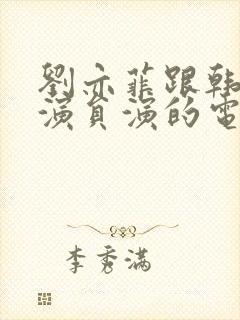 劉亦菲跟韩
演員演的電
李秀满